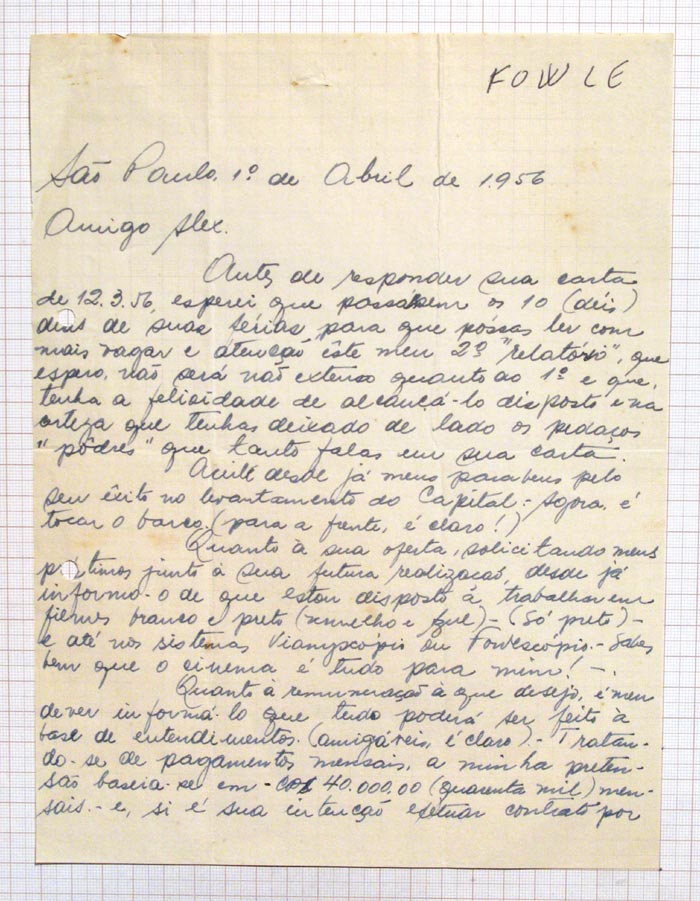 FOWLE
São Paulo, 1º de Abril de 1.956
Amigo Alex.
Antes de responder sua carta
de 12.3.56, esperei que passassem os 10 (déis)
dias de suas férias para que póssas ler com
mais vagar e atenção êste meu 2º "relatório", que
espero, não será não extenso quanto ao 1º e que,
tenha a felicidade de alcançá-lo disposto e na
certeza que tenhas deixado de lado os pedaços
"pôdres" que tanto falas em sua carta.
Aceite desde já meus parabens pelo
seu êxito no levantamento do Capital.- Agora, é
tocar o barco. (para a frente, é claro!)
Quanto à sua oferta, solicitando meus
préstimos junto à sua futura realização, desde já
informo-o de que estou disposto á trabalhar em
filmes branco e preto (vermelho e azul) - (Só preto) -
e até nos sistemas Vianyscópio ou Fowlescópio.- Sabes
bem que o cinema é tudo para mim! -.
Quanto à remuneração à que desejo, é meu
dever informá-lo que tudo poderá ser feito à
base de entendimentos. (amigáveis, é claro).- Tratan-
do-se de pagamentos mensais, a minha preten-
são baseia-se em - 40.000,00 (quarenta mil) men-
sais.- e, si é sua intenção efetuar contrato por